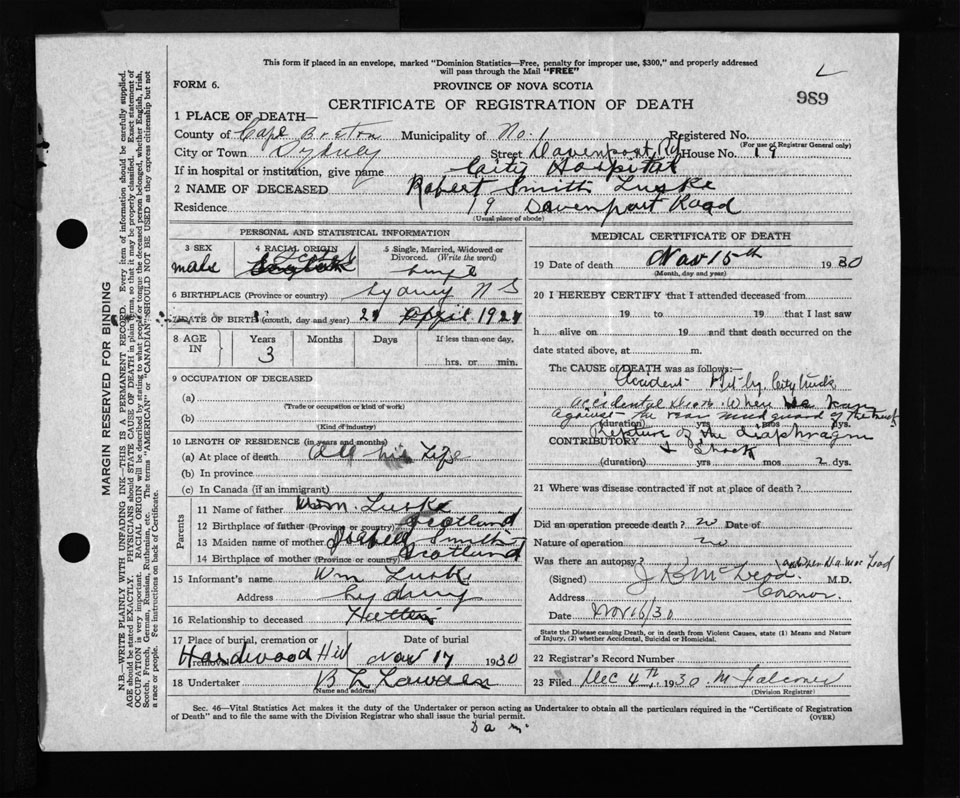 This form if placed in an envelope, marked "Dominion Statistics—Free, penalty for improper use, $300," and properly addressed
will pass through the Mail "FREE"
FORM 6.
PROVINCE OF NOVA SCOTIA
989
CERTIFICATE OF REGISTRATION OF DEATH
1 PLACE OF DEATH—
County of Cape Breton Municipality of No. 1 Registered No.
(For use of Registrar General only)
City or Town Sydney Street Davenport Rd House No. 19
If in hospital or institution, give name City Hospital
2 NAME OF DECEASED Robert Smith Luske
Residence 19 Davenport Road
(Usual place of abode)
PERSONAL AND STATISTICAL INFORMATION
3 SEX
male
4 RACIAL ORIGIN
5 Single, Married, Widowed or
Divorced. (Write the word)
single
6 BIRTHPLACE (Province or country) Sydney N S
7 DATE OF BIRTH (month, day and year) April 192
8 AGE
IN
Years
3
Months
Days
If less than one day,
hrs. or min.
9 OCCUPATION OF DECEASED
(a)
(Trade or occupation or kind of work)
(b)
(Kind of industry)
10 LENGTH OF RESIDENCE (in years and months)
(a) At place of death All his Life
(b) In province
(c) In Canada (if an immigrant)
Parents
11 Name of father Wm. Luske
12 Birthplace of father (Province or country) Scotland
13 Maiden name of mother Isabell Smith
14 Birthplace of mother (Province or country) Scotland
15 Informant's name Wm Luske
Address Sydney
16 Relationship to deceased Father
17 Place of burial, cremation or
removal
Hardwood Hill
Date of burial
Nov 17 1930
18 Undertaker B L
(Name and address)
MEDICAL CERTIFICATE OF DEATH
19 Date of death Nov 15th 1930
(Month, day and year)
20 I HEREBY CERTIFY that I attended deceased from
19 to 19 that I last saw
h alive on 19 and that death occurred on the
date stated above, at m.
The CAUSE of DEATH was as follows:—
Accident Hit by City truck
Accidental Death. When he ran
against the rear mud guard of the truck
(duration) yrs mos dys.
Rupture of the diaphragm
CONTRIBUTORY & Shock
(duration) yrs mos 2 dys.
21 Where was disease contracted if not at place of death?
Did an operation precede death? no Date of
Nature of operation no
Was there an autopsy?
(Signed) J K McLeod M.D.
Address Coronor
Date Nov 16/30
State the Disease causing Death, or in death from Violent Causes, state (1) Means and Nature
of Injury, (2) whether Accidental, Suicidal or Homicidal.
22 Registrar's Record Number
23 Filed Dec 4th 1930 M Falconer
(Division Registrar)
Sec. 46—Vital Statistics Act makes it the duty of the Undertaker or person acting as Undertaker to obtain all the particulars required in the "Certificate of Registration
of Death" and to file the same with the Division Registrar who shall issue the burial permit.
(OVER)
MARGIN RESERVED FOR BINDING
N.B.—WRITE PLAINLY WITH UNFADING INK—THIS IS A PERMANENT RECORD. Every item of information should be carefully supplied.
AGE should be stated EXACTLY. PHYSICIANS should STATE CAUSE OF DEATH in plain terms, so that it may be properly classified. Exact statement of
OCCUPATION is very important. RACIAL ORIGIN will be described by stating to what people or tongue the deceased person belonged, whether English, Irish,
Scotch, French, German, Russian, Ruthenian, etc. The terms "AMERICAN" or "CANADIAN" SHOULD NOT BE USED as they express citizenship but not
a race or people. See instructions on back of Certificate.